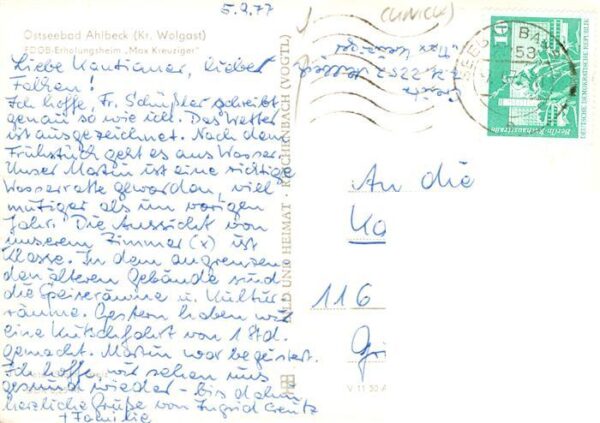 5.9.77
Ostseebad Ahlbeck (Kr. Wolgast)
FDGB-Erholungsheim „Max Kreuziger"
Liebe Kantianer, lieber
Falken!
Ich hoffe, Fr. Schüßler schreibt
genau so wie ich. Das Wetter
ist ausgezeichnet. Nach dem
Frühstück geht es ans Wasser.
Unser Martin ist eine richtige
Wasserratte geworden, viel
mutiger als im vorigen
Jahr. Die Aussicht von
unserem Zimmer (x) ist
Klasse. In dem angrenzen
den älteren Gebäude sind
die Speiseräume u. Kultur
räume. Gestern haben wir
eine Kutschfahrt von 1 Std.
gemacht. Martin war begeistert.
Ich hoffe, wir sehen uns
gesund wieder - bis dahin
herzliche Grüße von Ingrid Creutz
+ Familie
BILD UND HEIMAT REICHENBACH (VOGTL)
V 11 50 A
Creutz
"Max Kreuziger"
10
DEUTSCHE DEMOKRATISCHE REPUBLIK
An die
Ka
116